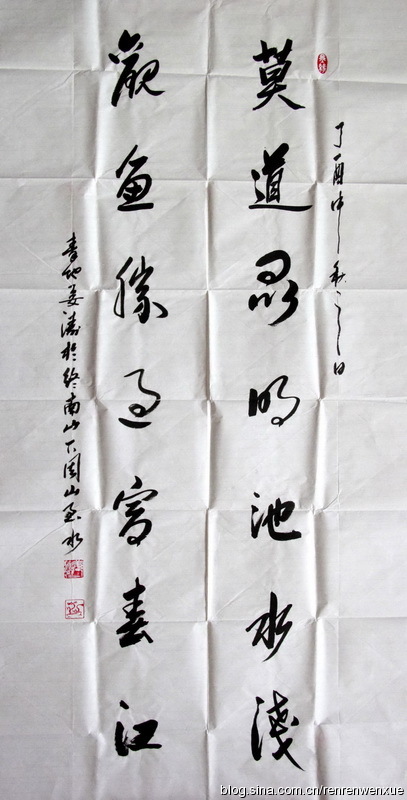 丁酉中秋之日
莫道昆明池水淺
觀魚勝過富春江
濤於終南山下山水
blog.sina.com.cn/renrenwenxue